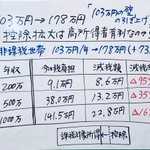 103万円→178万円
「103万円の壁の引き上げ」
控除拡大は高所得者有利なの?
非課税世帯 103万/年→178万円(+73.
年収 今の税負担 減税額 減税
200万 9.1万円 8.6万円
500万 38.0万円 13.2万円
1000万 141.5万円 22.8万円
課税対象所得=…−控除